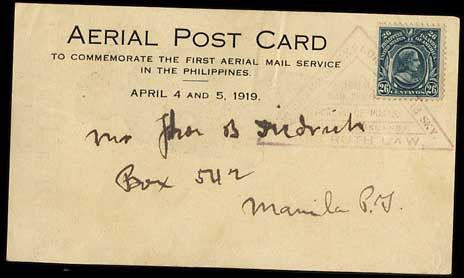 AERIAL POST CARD
TO COMMEMORATE THE FIRST AERIAL MAIL SERVICE
IN THE PHILIPPINES.
APRIL 4 AND 5, 1919.
26 26
26 CENTAVOS 26
SKY
RUTH LAW
Mr John B
Box 542
Manila P.I.